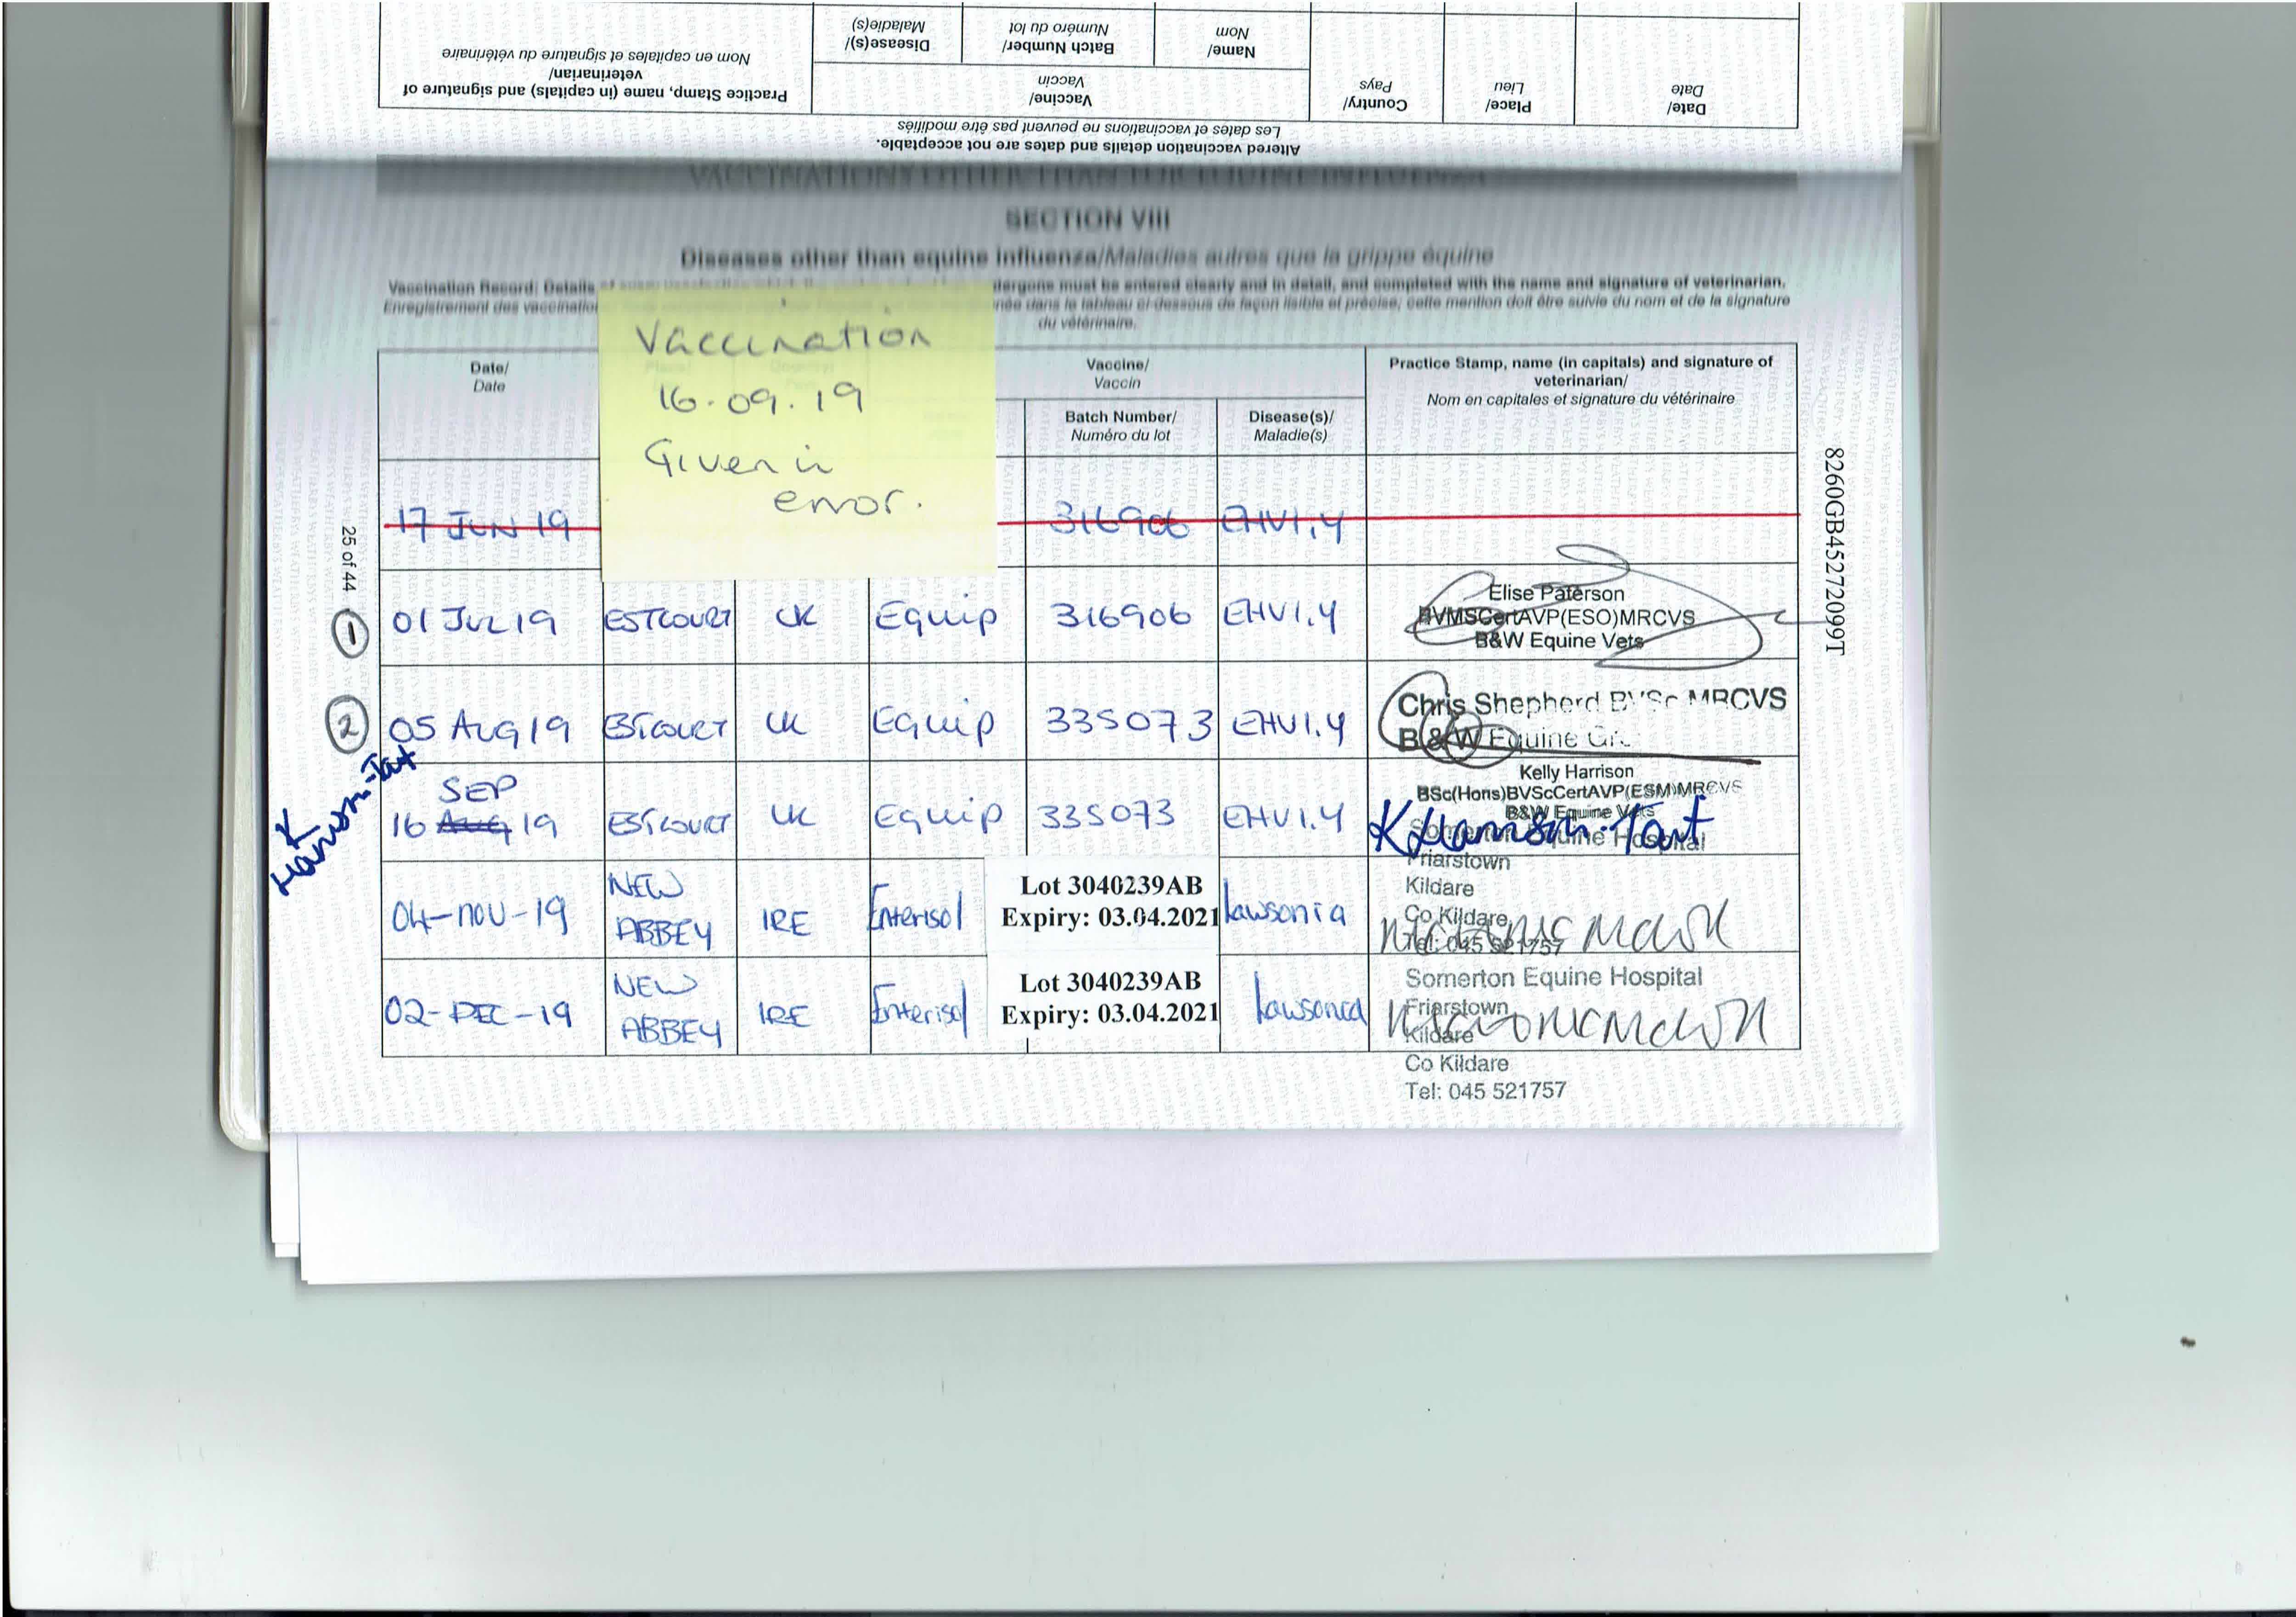 Practice Stamp, name (in capitals) and signature of
veterinarian/
Nom en capitales et signature du vétérinaire
Vaccine/
Vaccin
Disease(s)/
Maladie(s)
Batch Number/
Numéro du lot
Name/
Nom
Country/
Pays
Place/
Lieu
Date/
Date
Altered vaccination details and dates are not acceptable.
Les dates et vaccinations ne peuvent pas être modifiés
VACCINATIONS OTHER THAN FOR EQUINE INFLUENZA
SECTION VIII
Diseases other than equine influenza/Maladies autres que la grippe équine
Vaccination Record: Details of dergone must be entered clearly and in detail, and completed with the name and signature of veterinarian.
Enregistrement des vaccination dans le tableau ci-dessous de façon lisible et précise, cette mention doit être suivie du nom et de la signature
du vétérinaire.
Vaccination
16.09.19
Given in
error.
Date/
Date
Vaccine/
Vaccin
Batch Number/
Numéro du lot
Disease(s)/
Maladie(s)
Practice Stamp, name (in capitals) and signature of
veterinarian/
Nom en capitales et signature du vétérinaire
17 JUN 19 316906 EHV1,4
1 01 JUL 19 ESTCOURT UK Equip 316906 EHV1,4
Elise Paterson
BVMSCertAVP(ESO)MRCVS
B&W Equine Vets
2 05 AUG 19 ESTCOURT UK Equip 335073 EHV1,4
Chris Shepherd BVSc MRCVS
B&W Equine Gr
SEP
16 AUG 19 ESTCOURT UK Equip 335073 EHV1,4
Kelly Harrison
BSc(Hons)BVScCertAVP(ESM)MRCVS
B&W Equine Vets
K Harrison-Tart
K Harrison-Tart
04-NOV-19 NEW ABBEY IRE Enterisol Lot 3040239AB Expiry: 03.04.2021 Lawsonia
Somerton Equine Hospital
Friarstown
Kildare
Co Kildare
Tel: 045 521757
02-DEC-19 NEW ABBEY IRE Enterisol Lot 3040239AB Expiry: 03.04.2021 Lawsonia
Somerton Equine Hospital
Friarstown
Kildare
Co Kildare
Tel: 045 521757
25 of 44
8260GB452720099T